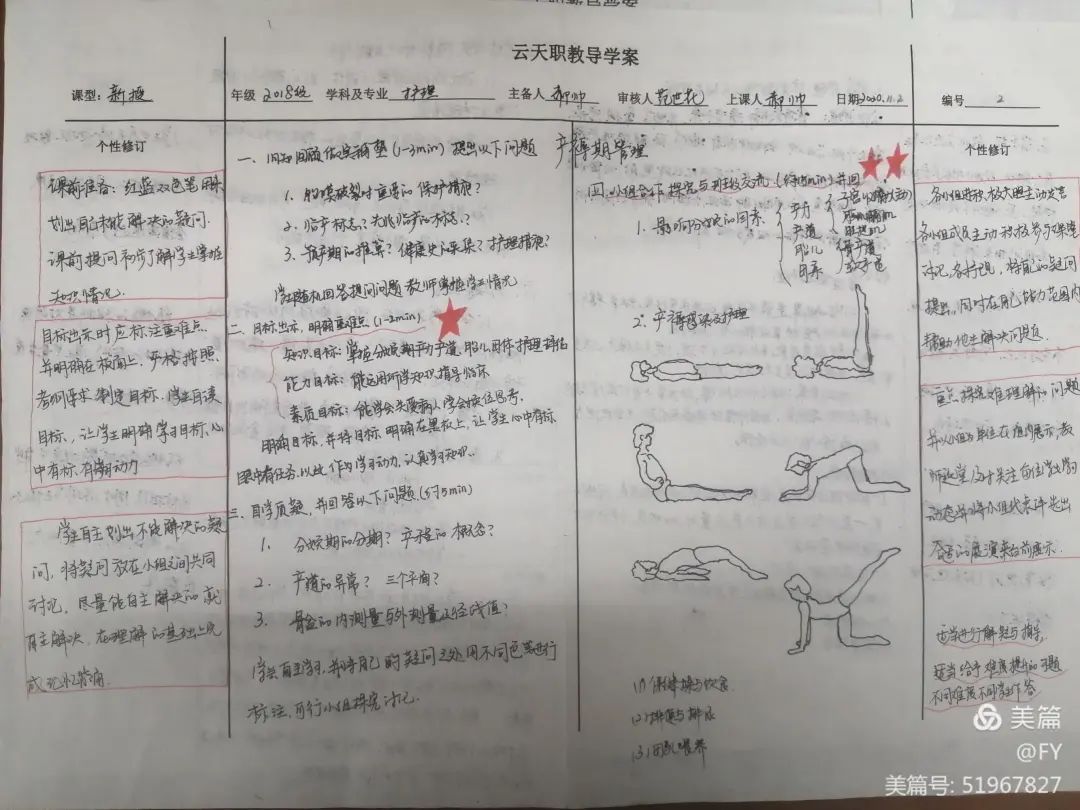 云天职教导学案
课型: 新授
年级 2018级 学科及专业 护理 主备人 郝帅 审核人 范世花 上课人 郝帅 日期 2020.11.2 编号 2
个性修订
课前准备：红蓝双色笔用来
划出自己未能解决的疑问.
课前提问环节了解学生掌握
知识情况.
目标出示时应标注重难点
并明确在板面上、严格按照
考纲要求制定目标. 学生自读
目标, 让学生明确学习目标, 心
中有标, 有学习动力
学生自主划出不能解决的疑
问, 将疑问放在小组之间共同
讨论, 尽量能自主解决的就
自主解决, 在理解的基础上完
成
一、旧知回顾 做实铺垫 (1-3min) 提出以下问题
1. 胎膜破裂时重要的保护措施?
2. 临产标志? 先兆临产的标志?
3. 预产期的推算? 健康史的采集? 护理措施?
学生随机回答提问问题 教师掌握学习情况
二、目标出示, 明确重难点 (1-2min)
知识目标: 掌握分娩期产力产道、胎儿因素 护理评估
能力目标: 能运用所学知识指导临床
素质目标: 能学会关爱病人 学会换位思考.
明确目标, 并将目标明确在黑板上, 让学生心中有标,
眼中有任务, 以此作为学习动力, 认真学习知识.
三、自学质疑, 并回答以下问题 (5min)
1. 分娩期的分期? 产程的概念?
2. 产道的异常? 三个平面?
3. 骨盆的内测量与外测量及径线值?
学生自主学习, 并将自己的疑问之处用不同色笔进行
标注, 可行小组探究讨论.
产褥期管理
四、小组合作 探究与班级交流 (15min)
1. 影响分娩的因素.
产力
产道
胎儿
骨产道
软产道
2. 产褥感染及护理
(1) 保健操与饮食
(2) 排便与排尿
(3) 母乳喂养
个性修订
各小组积极放大胆主动发言
各小组成员主动积极参与课堂
讨论, 各抒己见, 将自己的疑问
提出, 同时在自己能力范围内
帮助他生解决问题
重点探究难理解的问题
并以小组为单位在组内展示, 教
师巡堂 及时关注每位学生学习
动态并将小组代表评选出
合适的展演来台前展示.
适当进行解疑与指导,
适当给予难度提升的习题
不同难度不同学生作答
美篇
@FY
美篇号: 51967827